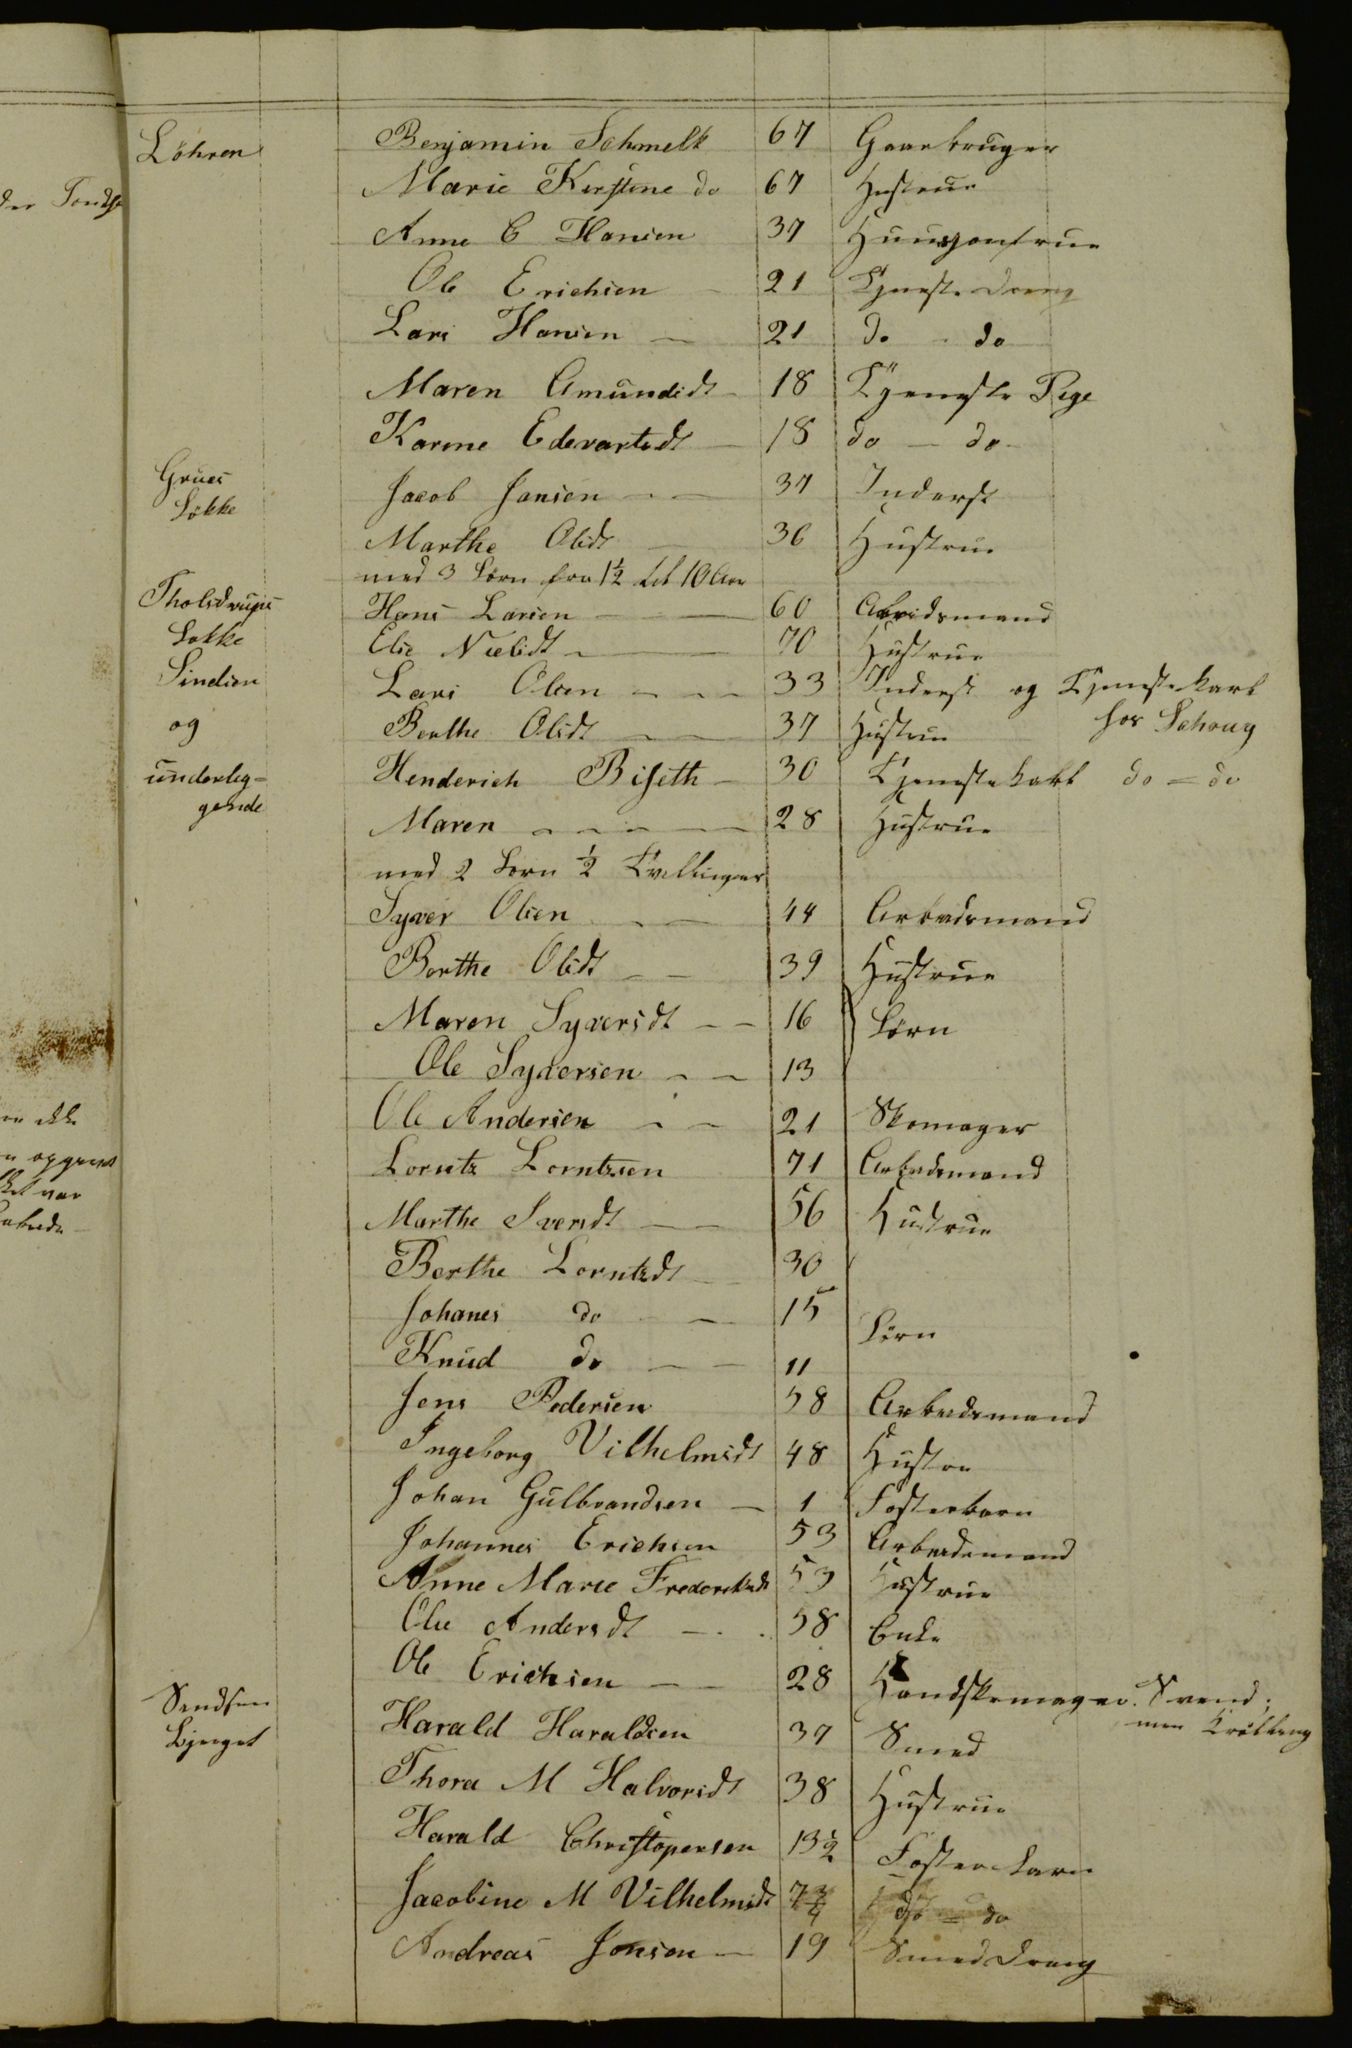 Löhren Benjamin Schmelk 67 Gaarbruger
Marie Kirstine do 67 Hustrue
Anne C Hansen 37 Huusjomfrue
Ole Erichsen 21 Tjeneste Dreng
Lars Hansen 21 do do
Maren Amundsdt 18 Tjeneste Pige
Karine Edevartsdt 18 do do
Grües Løkke Jacob Jansen 37 Inderst
Marthe Olsdt 36 Hustrue
med 3 børn fra 1½ til 10 Aar
Tholsdrups Hans Larsen 60 Arbeidsmand
Løkke Else Nielsdt 70 Hustrue
Lars Olsen 33 Inderst og Tjenestekarl
og Berthe Olsdt 37 Hustrue hos Schoug
underlig- Henderich Biseth 30 Tjenestekarl do do
gende Maren 28 Hustrue
med 2 børn ½ Tvillinger
Syver Olsen 44 Arbeidsmand
Berthe Olsdt 39 Hustrue
Maren Syversdt 16 børn
Ole Syversen 13
Ole Andersen 21 Skomager
Lorntz Lorntzen 71 Arbeidsmand
Marthe Iversdt 56 Hustrue
Berthe Lorntzdt 30
Johanes do 15 børn
Knud do 11
Jens Pedersen 58 Arbeidsmand
Ingeborg Vilhelmsdt 48 Hustrue
Johan Gulbrandsen 1 Fosterbarn
Johannes Erichsen 53 Arbeidsmand
Anne Marie Frederiksdt 53 Hustrue
Olie Andersdt 58 Enke
Ole Erichsen 28 Handskemager Svend,
Harald Haraldsen 37 Smed men Krøbling
Bjerget
Thora M Halvorsdt 38 Hustrue
Harald Christopersen 13½ Fosterbarn
Jacobine M Vilhelmsdt 7¾ do do
Andreas Jonsen 19 Smeddreng